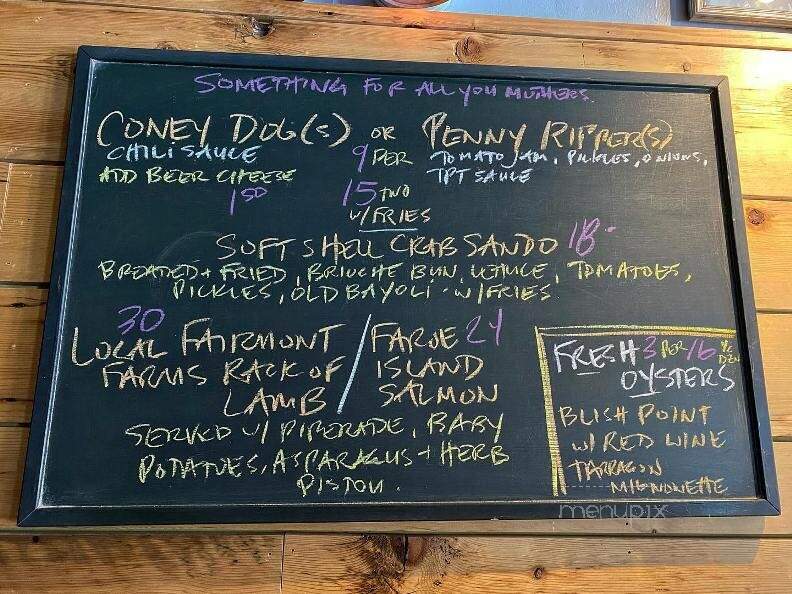 SOMETHING FOR ALL YOU MUTHERS.
CONEY DOG(S) OR PENNY RIPPER(S)
CHILI SAUCE 9 PER TOMATO JAM, PICKLES, ONIONS,
ADD BEER CHEESE TPT SAUCE
1.50 15 TWO
W/FRIES
SOFT SHELL CRAB SANDO 18-
BREADED + FRIED, BRIOCHE BUN, LETTUCE, TOMATOES,
PICKLES, OLD BAYOLI - W/FRIES
30
LOCAL FAIRMONT
FARMS RACK OF
LAMB
/
FAROE 24
ISLAND
SALMON
SERVED W/ PIPERADE, BABY
POTATOES, ASPARAGUS + HERB
PISTOU.
FRESH 3 PER 16 ½ DZN
OYSTERS
BLISH POINT
W/ RED WINE
TARRAGON
MIGNONETTE
menupix